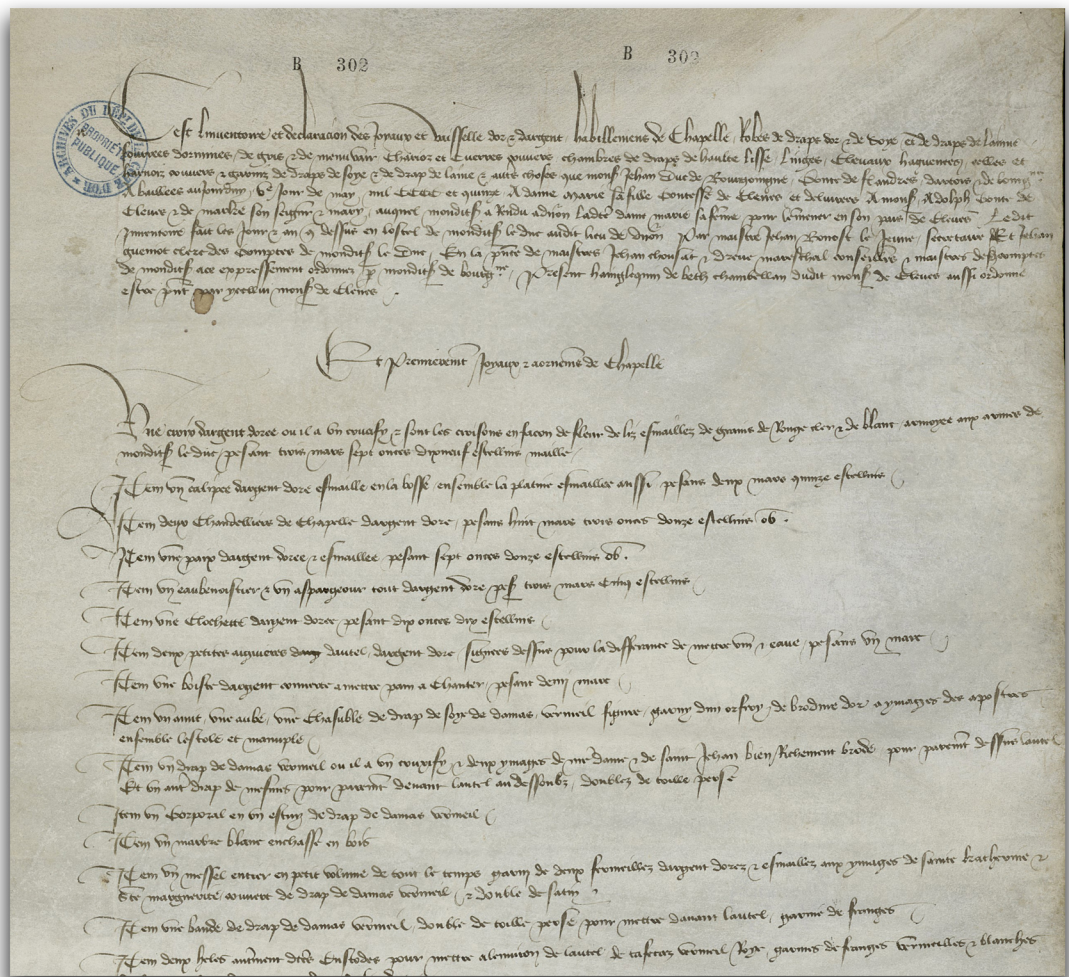 B 302 B 302
ARCHIVES DU DÉP
PROPRIÉTÉ PUBLIQUE
Cest linventoire et declaracion des joyaux et vaisselle dor et dargent habillemens de Chapelle Robes de draps dor et de soye et de draps de laine
fourrees dermines de gris et de menuvair Charioz et couvers chambres de draps de haulte lisse Linges Chevaux haguenees selles et
harnoiz couvers et garniz de draps de soye et de drap de laine et autres choses que mons Jehan Duc de Bourgoingne Conte de flandres dartois et de bourg
A baillees aujourduy de may mil CCCC et quinze A dame marie sa fille Contesse de Cleves et delivrees A mons Adolph Conte de
Cleves et de marke son seigneur et mary auquel mondit a Rendu ladicte dame marie sa feme pour lemener en son pais de Cleves Le dit
Inventoire fait les jour et an dessus en lostel de mondit le duc audit lieu de dijon Par maistre Jehan Bonost le jeune secretaire Et Jehan
guenot clerc des Comptes de mondit le Duc En la pnce de maistres Jehan chousat et dreue mareschal conseillers et maistres des comptes
de mondit ace expressement ordonnez mondit de bourg Present de beth chambellan dudit mons de Cleves aussi ordonne
estre pnt par icellui mons de Cleves
Et Premierement Joyaux et aornemens de Chapelle
Une croix dargent doree ou il a un crucify et sont les croisons en facon de fleur de liz esmaillez de Rouge cler et de blanc armoyee aux armes de
mondit le duc pesant trois mars sept onces dixneuf estellins maille
Item un calipce dargent dore esmaille en la bosse ensemble la platine esmaillee aussi pesans deux mars quinze estellins
Item deux Chandelliers de Chapelle dargent dore pesans huit mars trois onces douze estellins ob.
Item une paix dargent doree et esmaillee pesant sept onces douze estellins ob.
Item un eaubenoistier et un aspergeour tout dargent dore pes trois mars cinq estellins
Item une Clochette dargent doree pesant dix onces dix estellins
Item deux petites aiguieres dautel dargent dore signees dessus pour la differance de mettre vin et eaue pesans un marc
Item une boiste dargent a mettre pain a Chanter pesant demi marc
Item un amit une aube une Chasuble de drap de soye de damas vermeil figure garny dun orfroy de brodeure dor a ymages des apostres
ensemble lestole et manuple
Item un drap de damas vermeil ou il a un crucify et deux ymages de nre dame et de saint Jehan bien Richement brode pour parement dessus lautel
Et un aut drap de mesmes pour parement devant lautel au dessoubz doublez de toille perse
Item un Corporal en un estuy de drap de damas vermeil
Item un marbre blanc enchasse en bois
Item un messel entier en petit volume de tout le temps garni de deux fermeillez dargent dorez et esmaillez aux ymages de sainte katherine et
Ste marguerite couvert de drap de damas vermeil et double de satin
Item une bande de drap de damas vermeil double de toille perse pour mettre devant lautel garnie de franges
Item deux heles autrement dictes Custodes pour mettre alenviron de lautel de tafetas vermeil Roye garnies de franges vermeilles et blanches